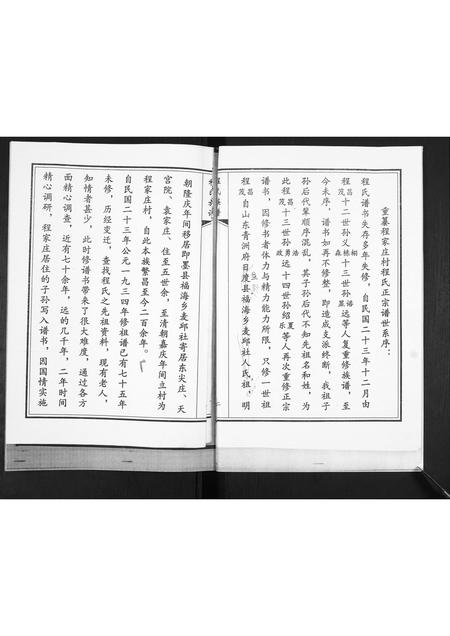 重纂程家庄村程氏正宗谱世系序：
程氏谱书失存多年失修，自民国二十三年十二月由
程茂昌十二世孙义森栋相十三世孙显语远等人复重修族谱，至
今未序，谱书如再不修整，即造成支派终断，我祖子
孙后代辈顺序混乱，其子孙后代不知先祖名和姓，为
此程茂昌十三世孙勇政浩远十四世孙绍乐夏等人再次重修正宗
谱书，因修书者体力与精力能所限，只修一世祖
程茂昌自山东青洲府目度县福海乡麦邱社人氏祖，明
朝隆庆年间移居即墨县福海乡麦邱社寄居东尖庄、天
宫院、袁家庄、住至五世余，至清朝嘉庆年间立村为
程家庄村，自此本族繁昌至今二百余年。
自民国二十三年公元一九三四年修祖谱已有七十五年
未修，历经变迁，查找程氏之先祖资料，现有老人，
知情者甚少，此时修谱书带来了很大难度，通过各方
面精心调查，近有七十余年，远的几千年，二年时间
精心调研，程家庄居住的子孙写入谱书，因国情实施